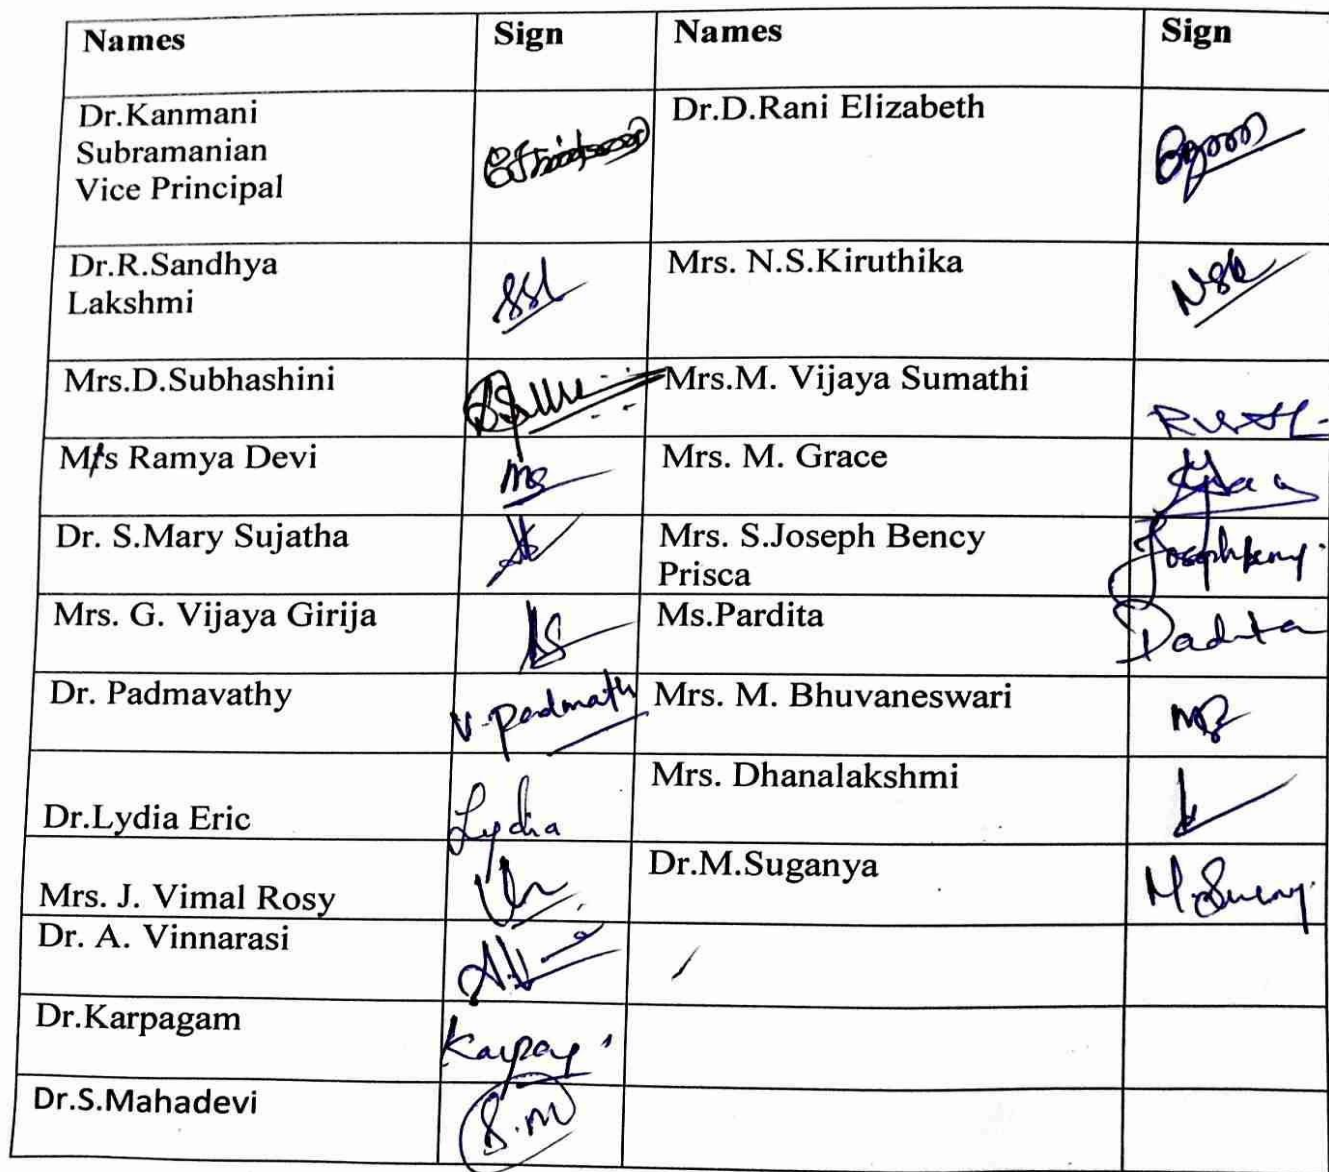 Names Sign Names Sign
Dr.Kanmani
Subramanian
Vice Principal
Dr.D.Rani Elizabeth
Dr.R.Sandhya
Lakshmi
SSL
Mrs. N.S.Kiruthika
NSK
Mrs.D.Subhashini
Mrs.M. Vijaya Sumathi
M/s Ramya Devi
Mrs. M. Grace
Dr. S.Mary Sujatha
Mrs. S.Joseph Bency
Prisca
Mrs. G. Vijaya Girija
Ms.Pardita
Dr. Padmavathy
Mrs. M. Bhuvaneswari
Dr.Lydia Eric
Lydia
Mrs. Dhanalakshmi
Mrs. J. Vimal Rosy
Dr.M.Suganya
Dr. A. Vinnarasi
Dr.Karpagam
Dr.S.Mahadevi
S.M